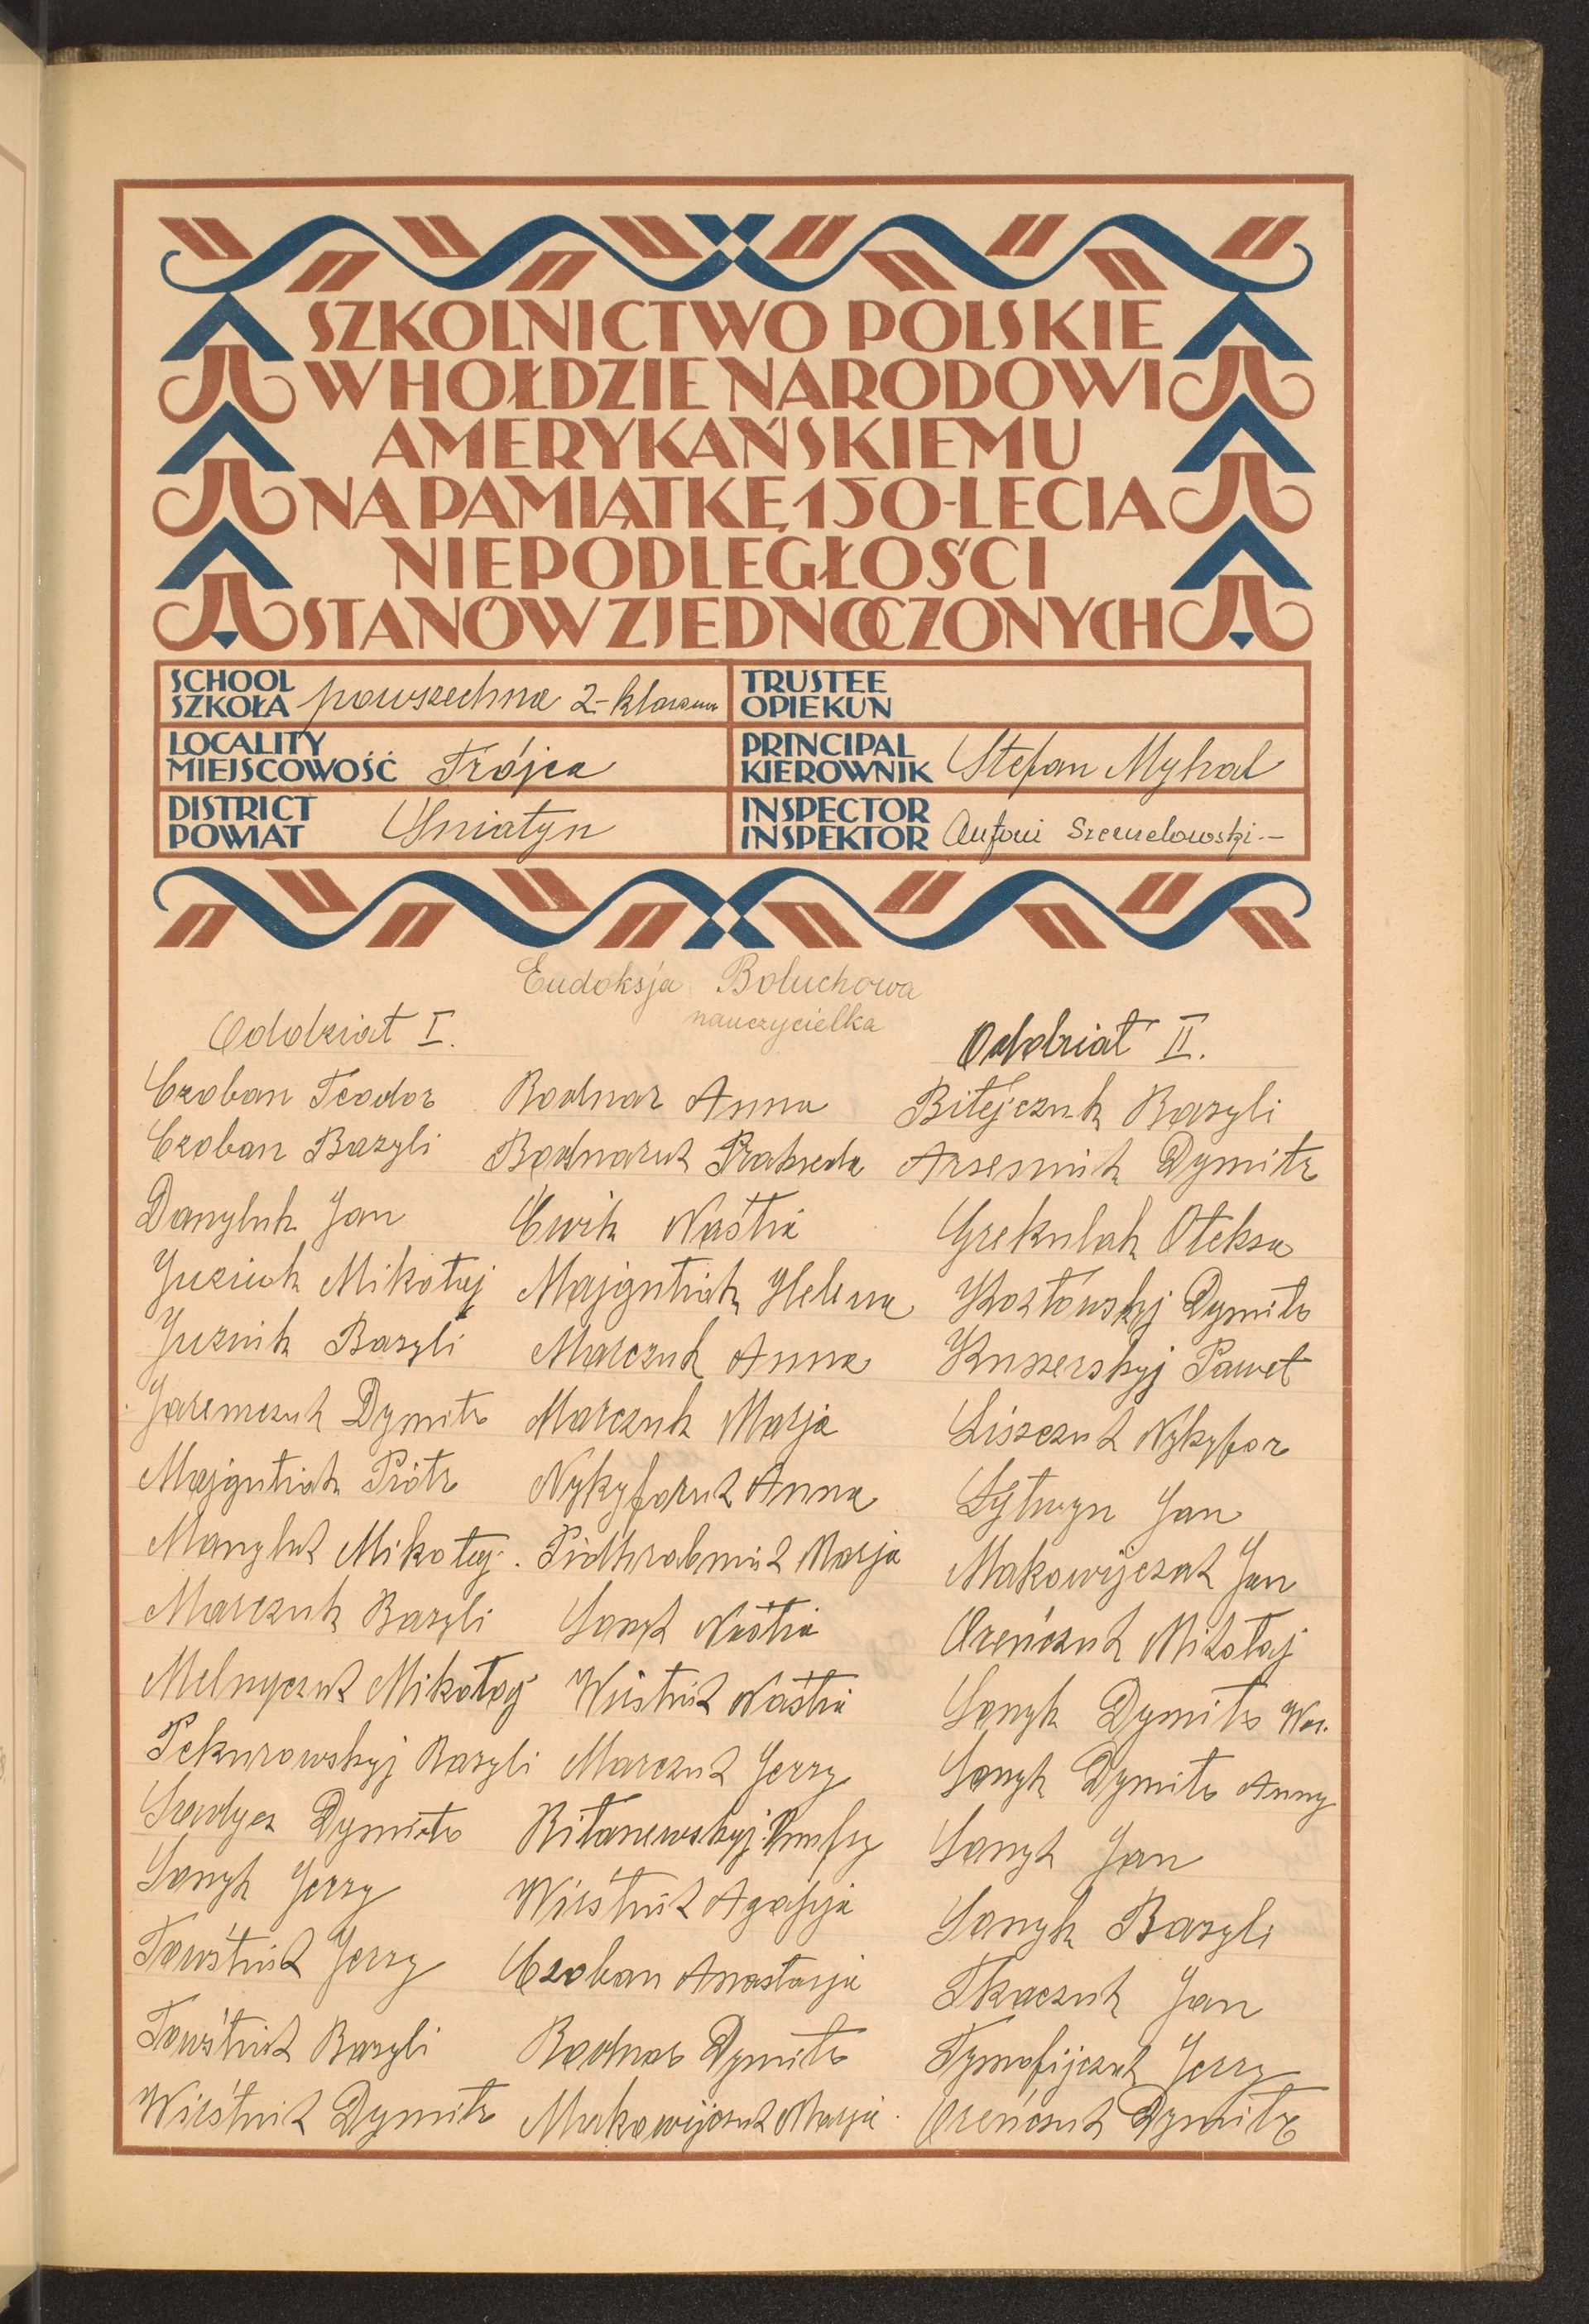 SZKOLNICTWO POLSKIE
W HOŁDZIE NARODOWI
AMERYKAŃSKIEMU
NA PAMIĄTKĘ 150-LECIA
NIEPODLEGŁOŚCI
STANÓW ZJEDNOCZONYCH
SCHOOL
SZKOŁA powszechna 2-klasowa
TRUSTEE
OPIEKUN
LOCALITY
MIEJSCOWOŚĆ Trójca
PRINCIPAL
KIEROWNIK Stefan Mykal
DISTRICT
POWIAT Śniatyn
INSPECTOR
INSPEKTOR Antoni
Eudoksja Boluchowa
nauczycielka
Oddział I.
Czoban Teodor
Czoban Bazyli
Danyluk Jan
Juziuk Mikołaj
Juzuik Bazyli
Jaremczuk Dymitr
Majgutiak Piotr
Manyluk Mikołaj
Marczuk Bazyli
Melnyczuk Mikołaj
Pekurowskyj Bazyli
Dymitr
Sonyk Jerzy
Towstiuk Jerzy
Towstiuk Bazyli
Wirstiuk Dymitr
Bodnar Anna
Bodnaruk Prakseda
Cwik Naścia
Majgutiak Helena
Marczuk Anna
Marczuk Marja
Nykyforuk Anna
Pidhrabniuk Marja
Sonyk Naścia
Wirstiuk Naścia
Marczuk Jerzy
Agafija
Czoban Anastazja
Bodnar Dymitr
Makowijczuk Marja
Oddział II.
Bitejczuk Bazyli
Arseniuk Dymitr
Grekulak Ołeksa
Kozłowskyj Dymitr
Kuszerskyj Paweł
Liszczuk Nykyfor
Łytwyn Jan
Makowijczuk Jan
Oreńczuk Mikołaj
Sonyk Dymitr Was.
Sonyk Dymitr Anny
Sonyk Jan
Sonyk Bazyli
Tkaczuk Jan
Tymofijczuk Jerzy
Oreńczuk Dymitr